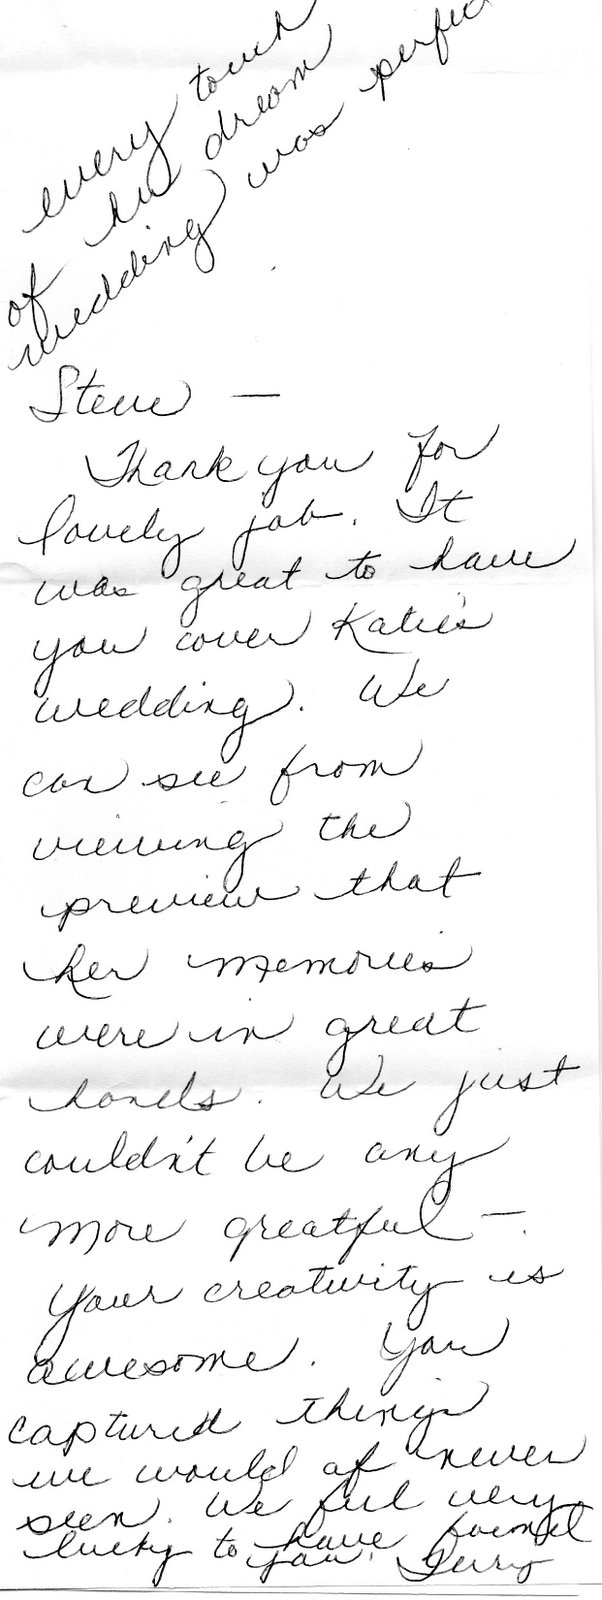 every touch
of her dream
wedding was perfect
Steve —
Thank you for
lovely job. It
was great to have
you cover Katie's
wedding. We
can see from
viewing the
preview that
her memories
were in great
hands. We just
couldn't be any
more greatful —.
Your creativity is
awesome. You
captured things
we would of never
seen. We feel very
lucky to have found
you. Terry